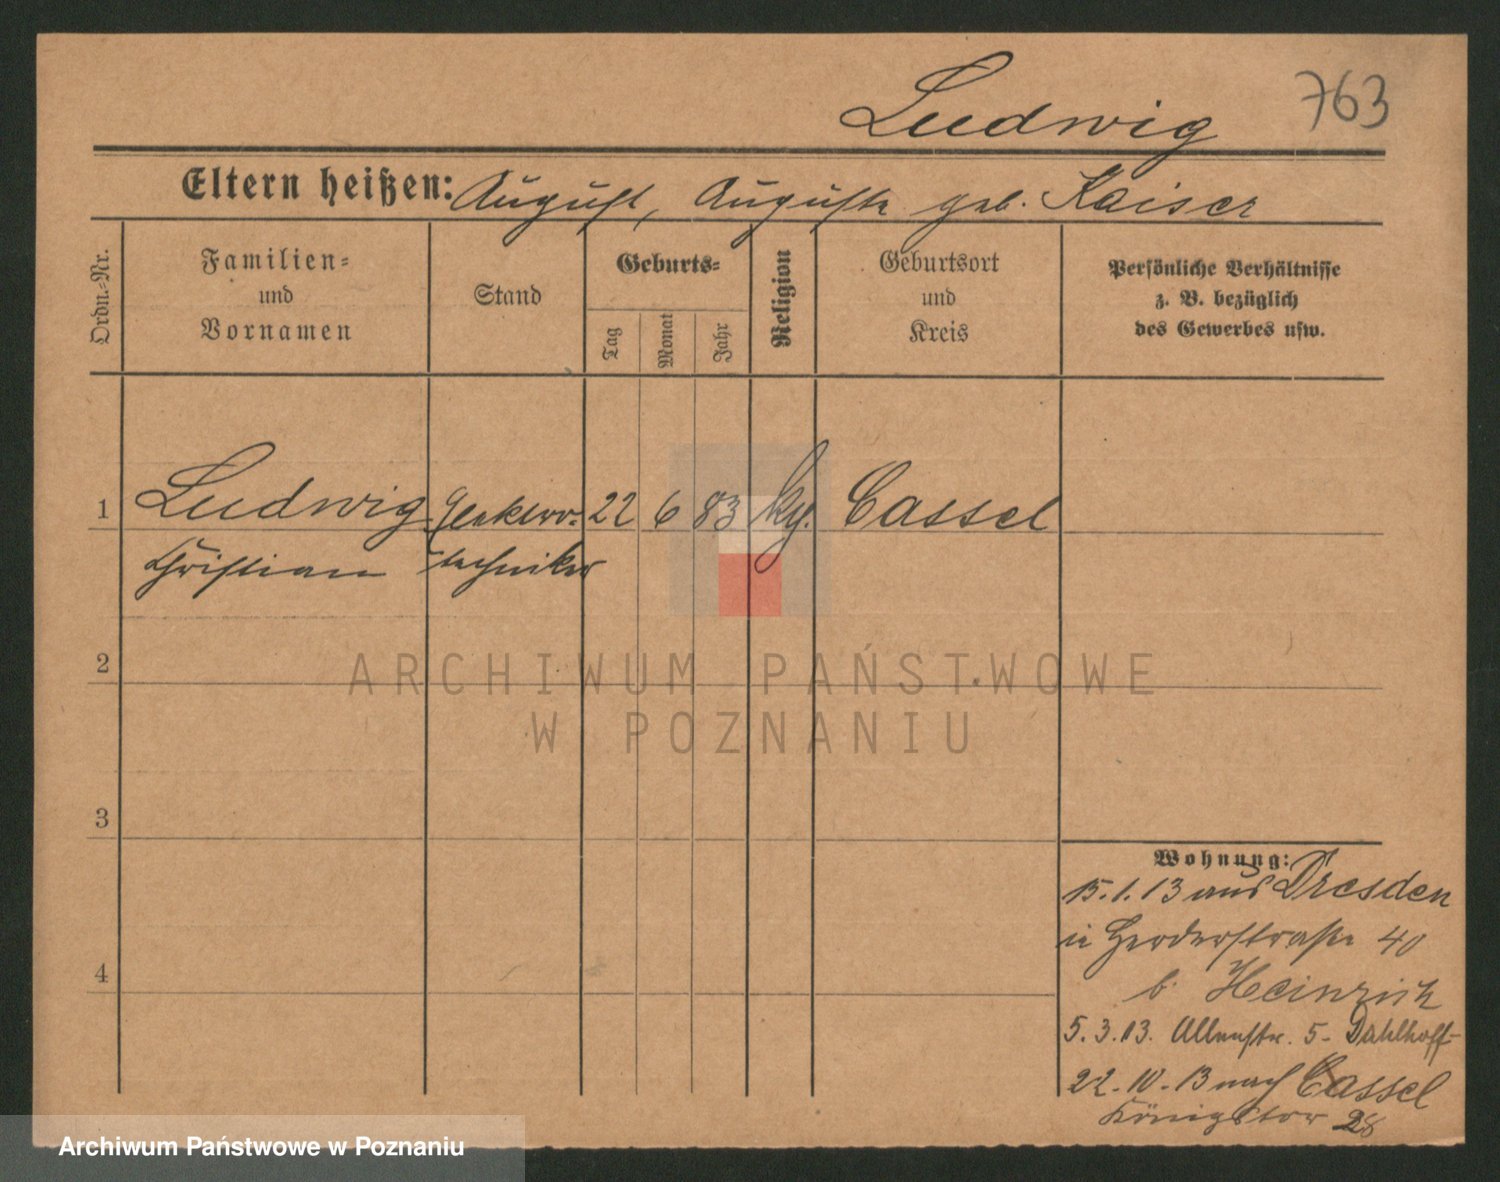 Ludwig
763
Eltern heißen: August, Auguste geb. Kaiser
Ordn.-Nr.
Familien-
und
Vornamen
Stand
Geburts-
Tag
Monat
Jahr
Religion
Geburtsort
und
Kreis
Persönliche Verhältnisse
z. B. bezüglich
des Gewerbes usw.
1 Ludwig Elektro- 22 6 83 Cassel
Christian techniker
2
3
4
Wohnung:
15.1.13 aus Dresden
Herderstraße 40
b. Heinrich
5.3.13. 5 - Dahlhoff
22.10.13 nach Cassel
Königstor 28
ARCHIWUM PAŃSTWOWE
W POZNANIU
Archiwum Państwowe w Poznaniu